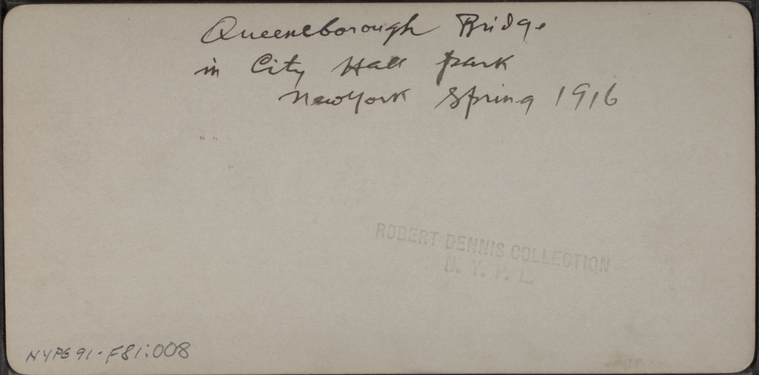 Queensborough Bridge
in City Hall park
New York Spring 1916
ROBERT DENNIS COLLECTION
N. Y. P. L.
NYPG91-F81:008